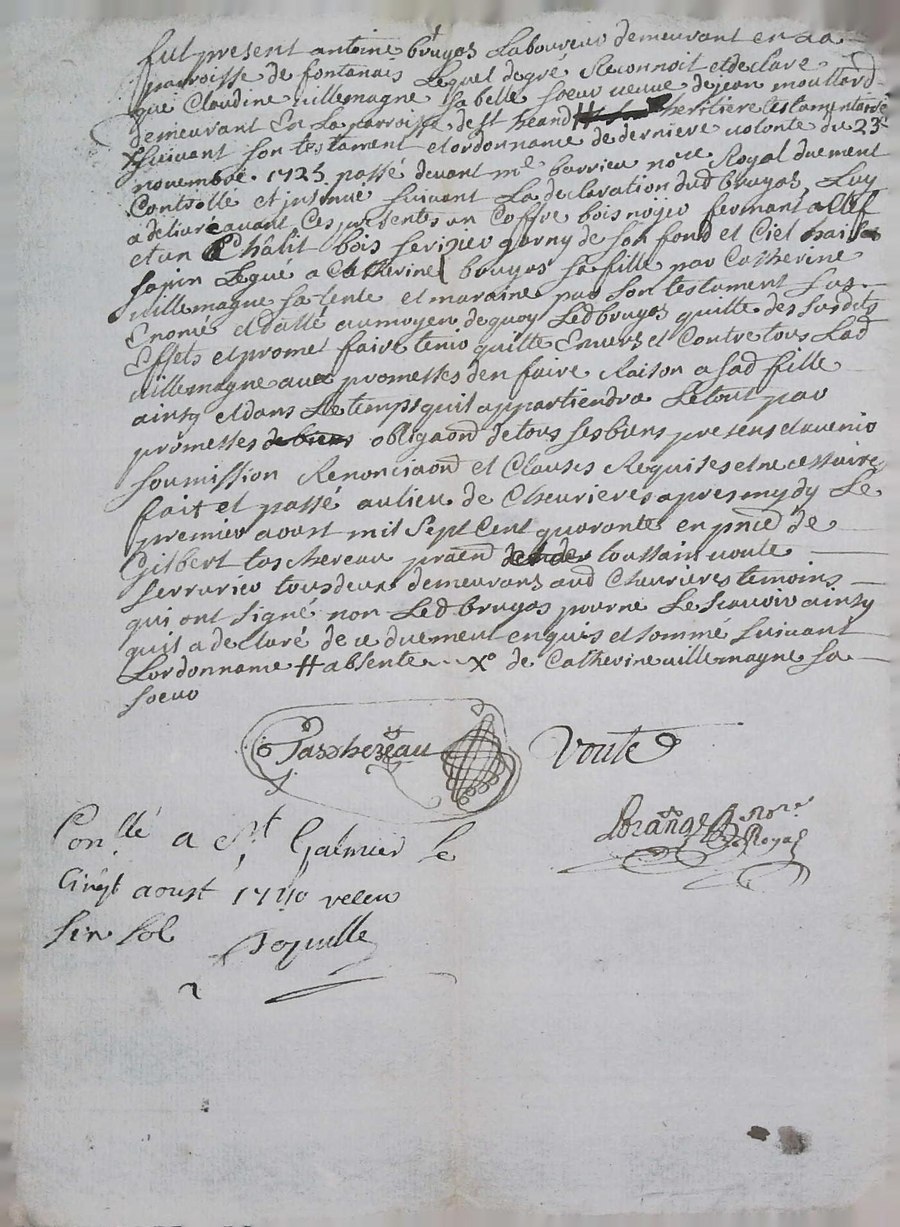 fut present antoine bruyas Laboureur demeurant en La
parroisse de fontanais Lequel de gré Reconnoit et declare
que Claudine villemagne sa belle soeur veuve de jean moullard
demeurant En La parroisse de st heand # heritiere testamentaire
X suivant son testament et ordonname de derniere volonte du 23e
novembre 1725 passé devant me barrieu nore Royal duement
Controllé et insinué suivant La declaration dud bruyas, Luy
a delivré avant Ces presentes un Coffre bois noyer fermant a Clef
et un Châlit bois serizier garny de son fond et Ciel bois
sapin Legué a Catherine bruyas sa fille par Catherine
villemagne sa tente et maraine par son testament sus
Enomé et datté au moyen de quoy Led bruyas quitte des susdits
Effets et promet faire tenir quitte Envers et Contre tous Lad
villemagne avec promesses den faire Raison a sad fille
ainsy et dans Le temps quil appartiendra Le tout par
promesses de biens obligaond de tous ses biens presens et avenir
soumission Renonciaond et Clauses Requises et necessaire
fait et passé au lieu de Chevrieres apres mydy Le
premier aoust mil sept Cent quarante en pnce de
Gilbert taschereau praend toussain voute
serrurier tous deux demeurans aud Chevrieres temoins
qui ont signé non Led bruyas pour ne Le scavoir ainsy
quil a declaré de ce duement enquis et sommé suivant
Lordonname # absente X de Catherine villemagne sa
soeur
Taschereau Voute
Nore
Royal
Conllé a St Galmier le
vingt aoust 1740 receu
six sol